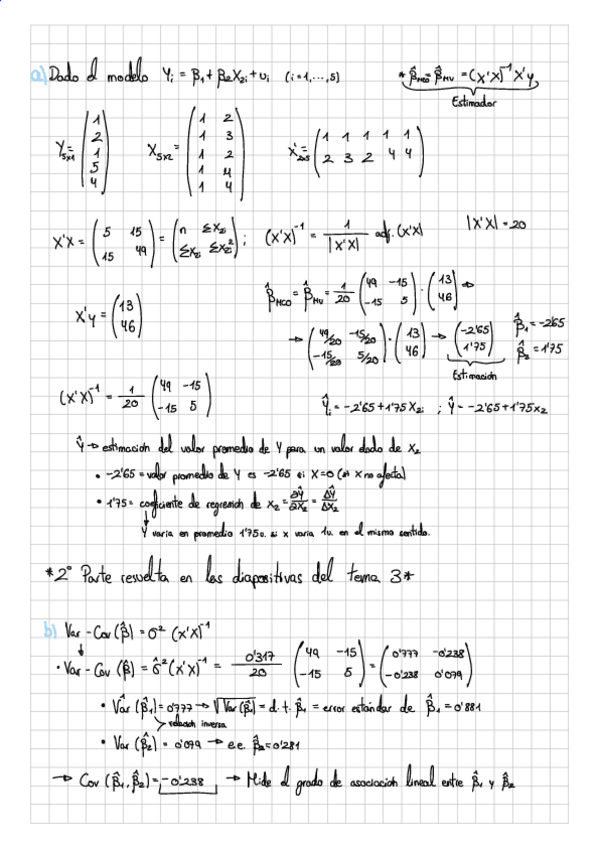 a) Dado el modelo Yi = β1 + β2X2i + ui (i=1,...,5) * β̂MCO = β̂MV = (X'X)⁻¹X'y
Estimador
Y5x1 = (1 2 1 5 4) X5x2 = (1 2; 1 3; 1 2; 1 4; 1 4) X'2x5 = (1 1 1 1 1; 2 3 2 4 4)
X'X = (5 15; 15 49) = (n ΣX2; ΣX2 ΣX2²) ; (X'X)⁻¹ = 1/|X'X| adj. (X'X) |X'X| = 20
X'y = (13; 46) β̂MCO = β̂MV = 1/20 (49 -15; -15 5) · (13; 46) ⇒
→ (49/20 -15/20; -15/20 5/20) · (13; 46) → (-2'65; 1'75) β̂1 = -2'65 β̂2 = 1'75
Estimación
(X'X)⁻¹ = 1/20 (49 -15; -15 5) Ŷi = -2'65 + 1'75 X2i ; Ŷ = -2'65 + 1'75x2
Ŷ → estimación del valor promedio de Y para un valor dado de X2
• -2'65 = valor promedio de Y es -2'65 si X=0 (si X no afecta)
• 1'75 = coeficiente de regresión de X2 = ∂Ŷ/∂X2 = ΔŶ/ΔX2
Y varía en promedio 1'75u. si x varía 1u. en el mismo sentido.
*2º Parte resuelta en las diapositivas del tema 3*
b) Var-Cov (β̂) = σ² (X'X)⁻¹
• Var-Cov (β̂) = σ̂² (X'X)⁻¹ = 0'317/20 (49 -15; -15 5) = (0'777 -0'238; -0'238 0'079)
• Var (β̂1) = 0'777 → √Var (β̂1) = d.t. β̂1 = error estándar de β̂1 = 0'881
relación inversa
• Var (β̂2) = 0'079 → e.e. β̂2 = 0'281
→ Cov (β̂1, β̂2) = -0'238 → Mide el grado de asociación lineal entre β̂1 y β̂2